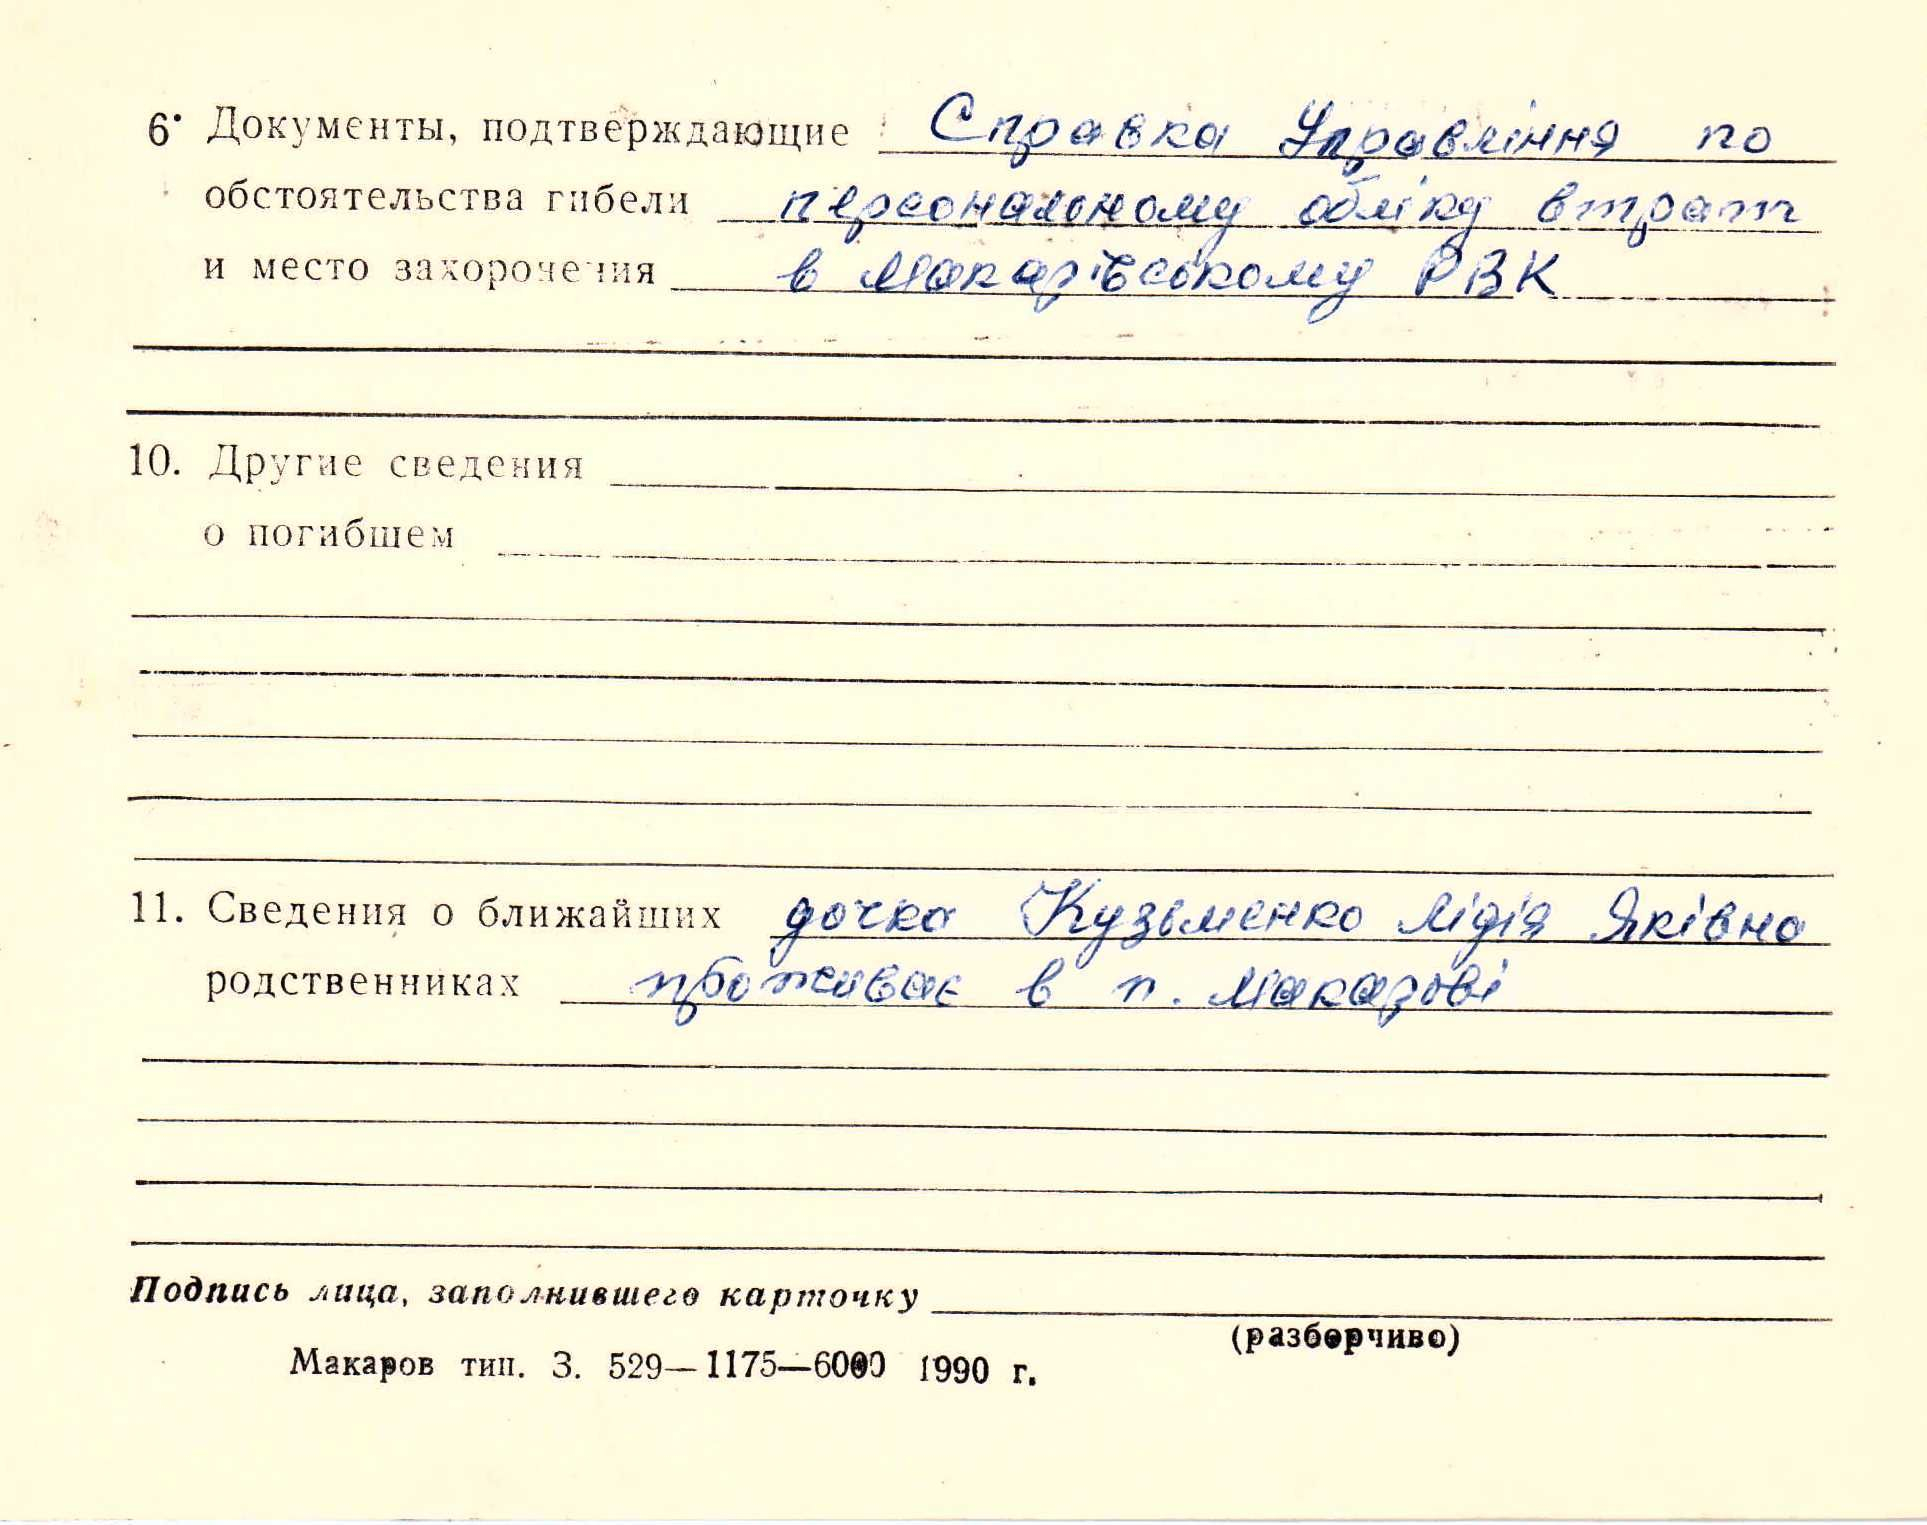 6. Документы, подтверждающие Справка Управління по
обстоятельства гибели персональному обліку втрат
и место захоронения в Макарівському РВК
10. Другие сведения
о погибшем
11. Сведения о ближайших дочка Кузьменко Лідія Яківна
родственниках проживає в п. Макарові
Подпись лица, заполнившего карточку
(разборчиво)
Макаров тип. З. 529—1175—6000 1990 г.